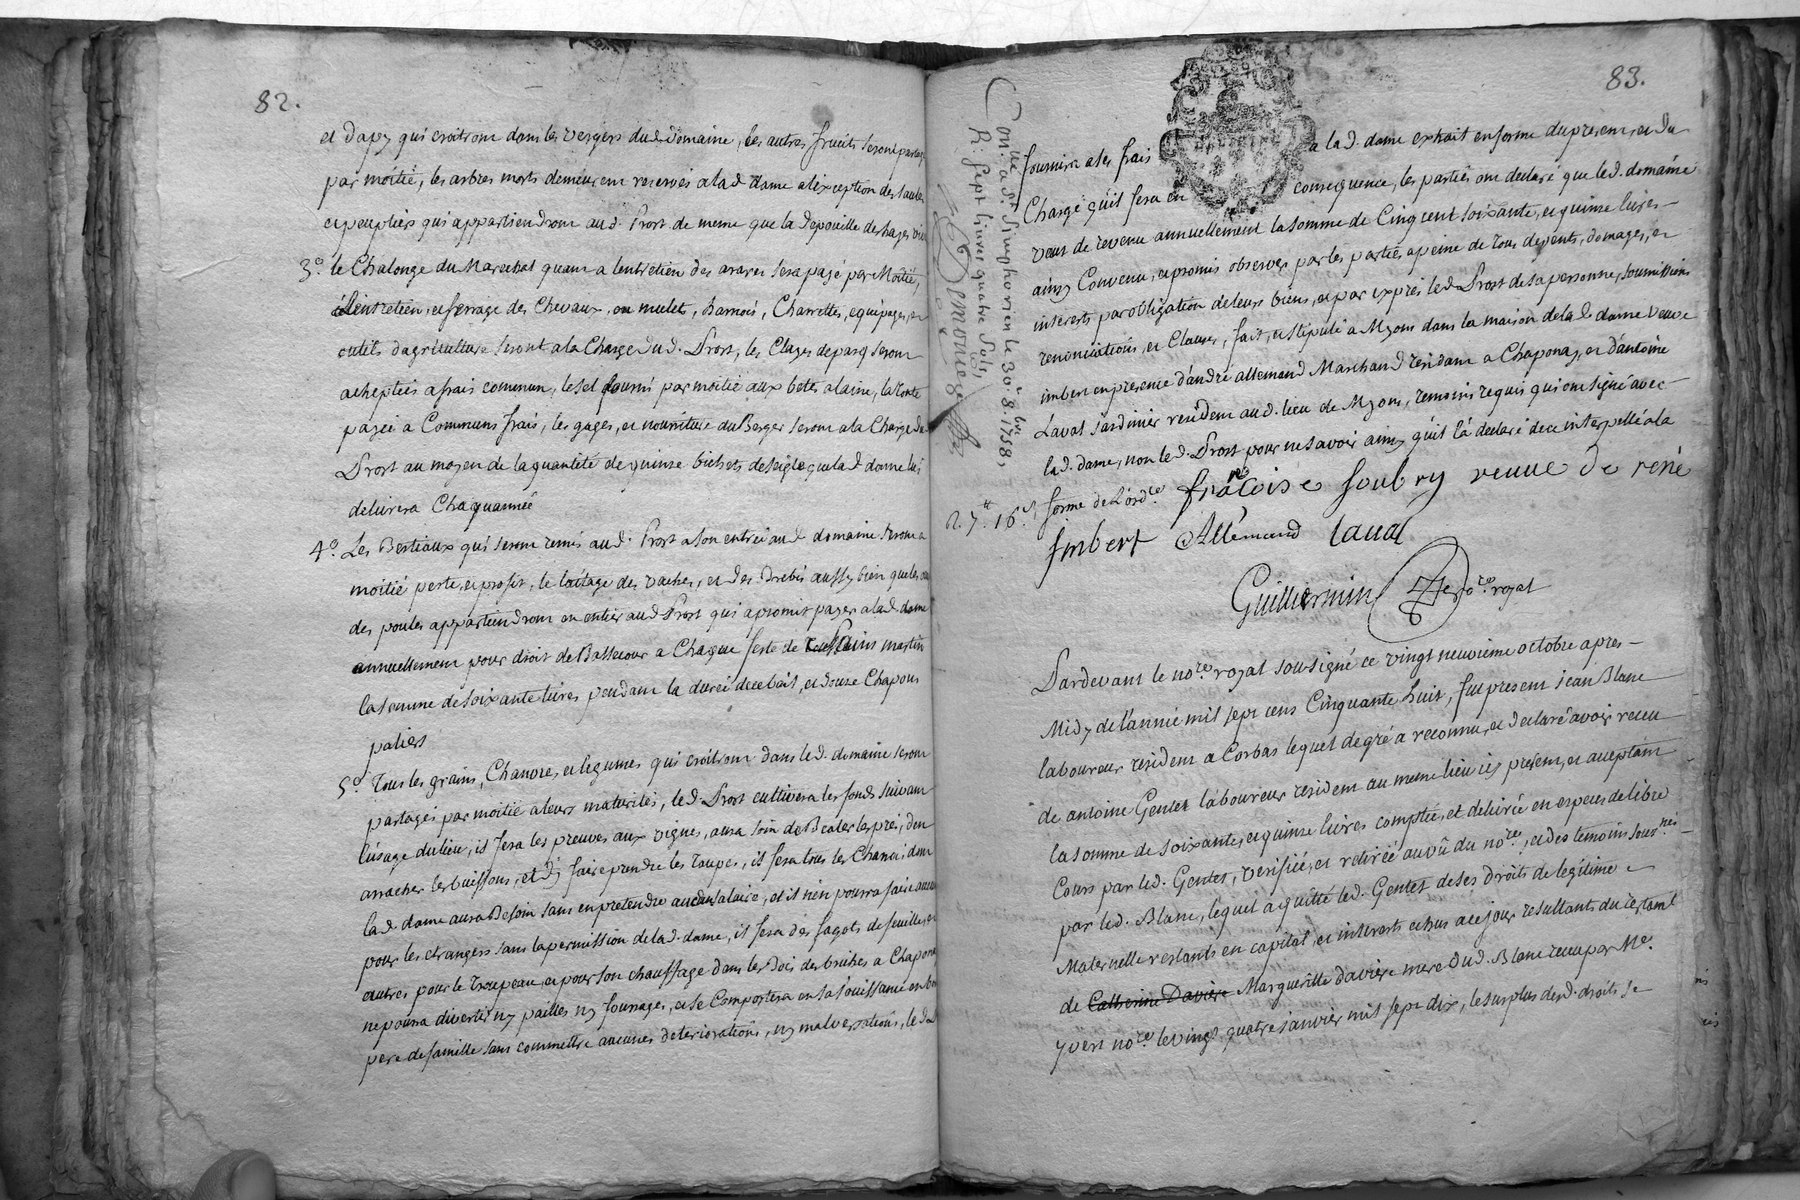 82.
et d'apy qui croitrons dans les vergers dud. domaine, les autres fruits seront partag
par moitié, les arbres morts demeurent reservés a lad. dame a l'exception des saules
et peupliers qui appartiendrons aud. Prost de meme que la depouille des hayes vive
3.° le Chalonge du Marechal quant a l'entretien des araires sera payé par Moitié,
et l'entretien, et ferrage des Chevaux, ou mulet, Barnois, Charrettes, equipages, et
outils dagriculture seront a la Charge dud. Prost, les Clayes de parcq seront
acheptées a frais commun, le sel fourni par moitié aux betes a laine, la tonte
payée a Communs frais, les gages, et nourriture du Berger seront a la Charge du
Prost au moyen de la quantité de quinze bichets de seigle que lad. dame lui
delivrera Chaquannée
4.° Les Bestiaux qui seront remis aud. Prost a son entrée aud. domaine seront a
moitié perte, et profit, le laitage des vaches, et des brebis aussy bien que les
des poules appartiendront en entier aud. Prost qui a promit payer a lad. dame
annuellement pour droit de Bassecour a Chaque feste de saint martin
la somme de soixante livres pendant la durée de ce bail, et douze Chapons
paliers
5.° Tous les grains, Chanvre, et legumes qui croitrons dans led. domaine seront
partagés par moitié a leurs maturités, led. Prost cultivera les fonds suivant
l'usage du lieu, il fera les preuves aux vignes, aura soin de Bealer les prés, d'en
arracher les buissons, et d'y faire prendre les taupes, il fera tous les Charrois dont
lad. dame aura Besoin sans en pretendre aucun salaire, et il n'en pourra faire aucun
pour les etrangers sans la permission de lad. dame, il fera des fagots de feuilles, et
autres pour le troupeau, et pour son chauffage dans les bois des bruhes a Chapona
ne pourra divertir ny pailles ny fourrages, et se Comportera en sa jouissance en bon
pere de famille sans commettre aucunes deteriorations, ny malversations, led.
83.
Con.lle a S.t Simphorien le 30.e 8.bre 1758,
R. sept livres quatre sols,
fournira a ses frais a lad. dame extrait en forme du present, et du
Chargé qu'il sera en consequence, les parties ont declaré que led. domaine
vaut de revenu annuellement la somme de Cinq cent soixante, et quinze livres
ainsy Convenu, et promis observer par les partie, a peine de tous depents, domages, et
interests par obligation de leurs biens, et par exprés led. Prost de sa personne, soumissions
renonciations, et Clauses, fait, et stipulé a Myons dans la maison de la d. dame veuve
imbert en presence d'andré allemand Marchand residant a Chaponay, et d'antoine
Laval Jardinier resident aud. lieu de Myons, temoins requis qui ont signé avec
lad. dame, non led. Prost pour ne savoir ainsy qu'il l'a declaré de ce interpellé a la
forme de L'ord.ce francoise soubry veuve de rené
R. 7.tt 16.s
Jmbert Allemand laual
Guillermin No.re royal
Pardevant le no.re royal sousigné ce vingt neuvieme octobre apres
Midy de l'année mil sept cens Cinquante huit, fut present jean Blanc
laboureur resident a Corbas lequel de gré a reconnu, et declaré avoir receu
de antoine Gentet laboureur resident au meme lieu icy présent, et acceptant
la somme de soixante, et quinze livres comptée, et delivrée en especes de libre
Cours par led. Gentet, verifiée, et retirée au vû du no.re, et des temoins sous.nés
par led. Blanc, lequel a quitté led. Gentet de ses droits de legitime
Maternelle restants en capital, et interests echus a ce jour resultants du testamt
de Catherine Daviere Margueritte daviere mere dud. Blanc receu par M.e
yvers no.re le vingt quatre janvier mil sept dix, le surplus desd. droits se